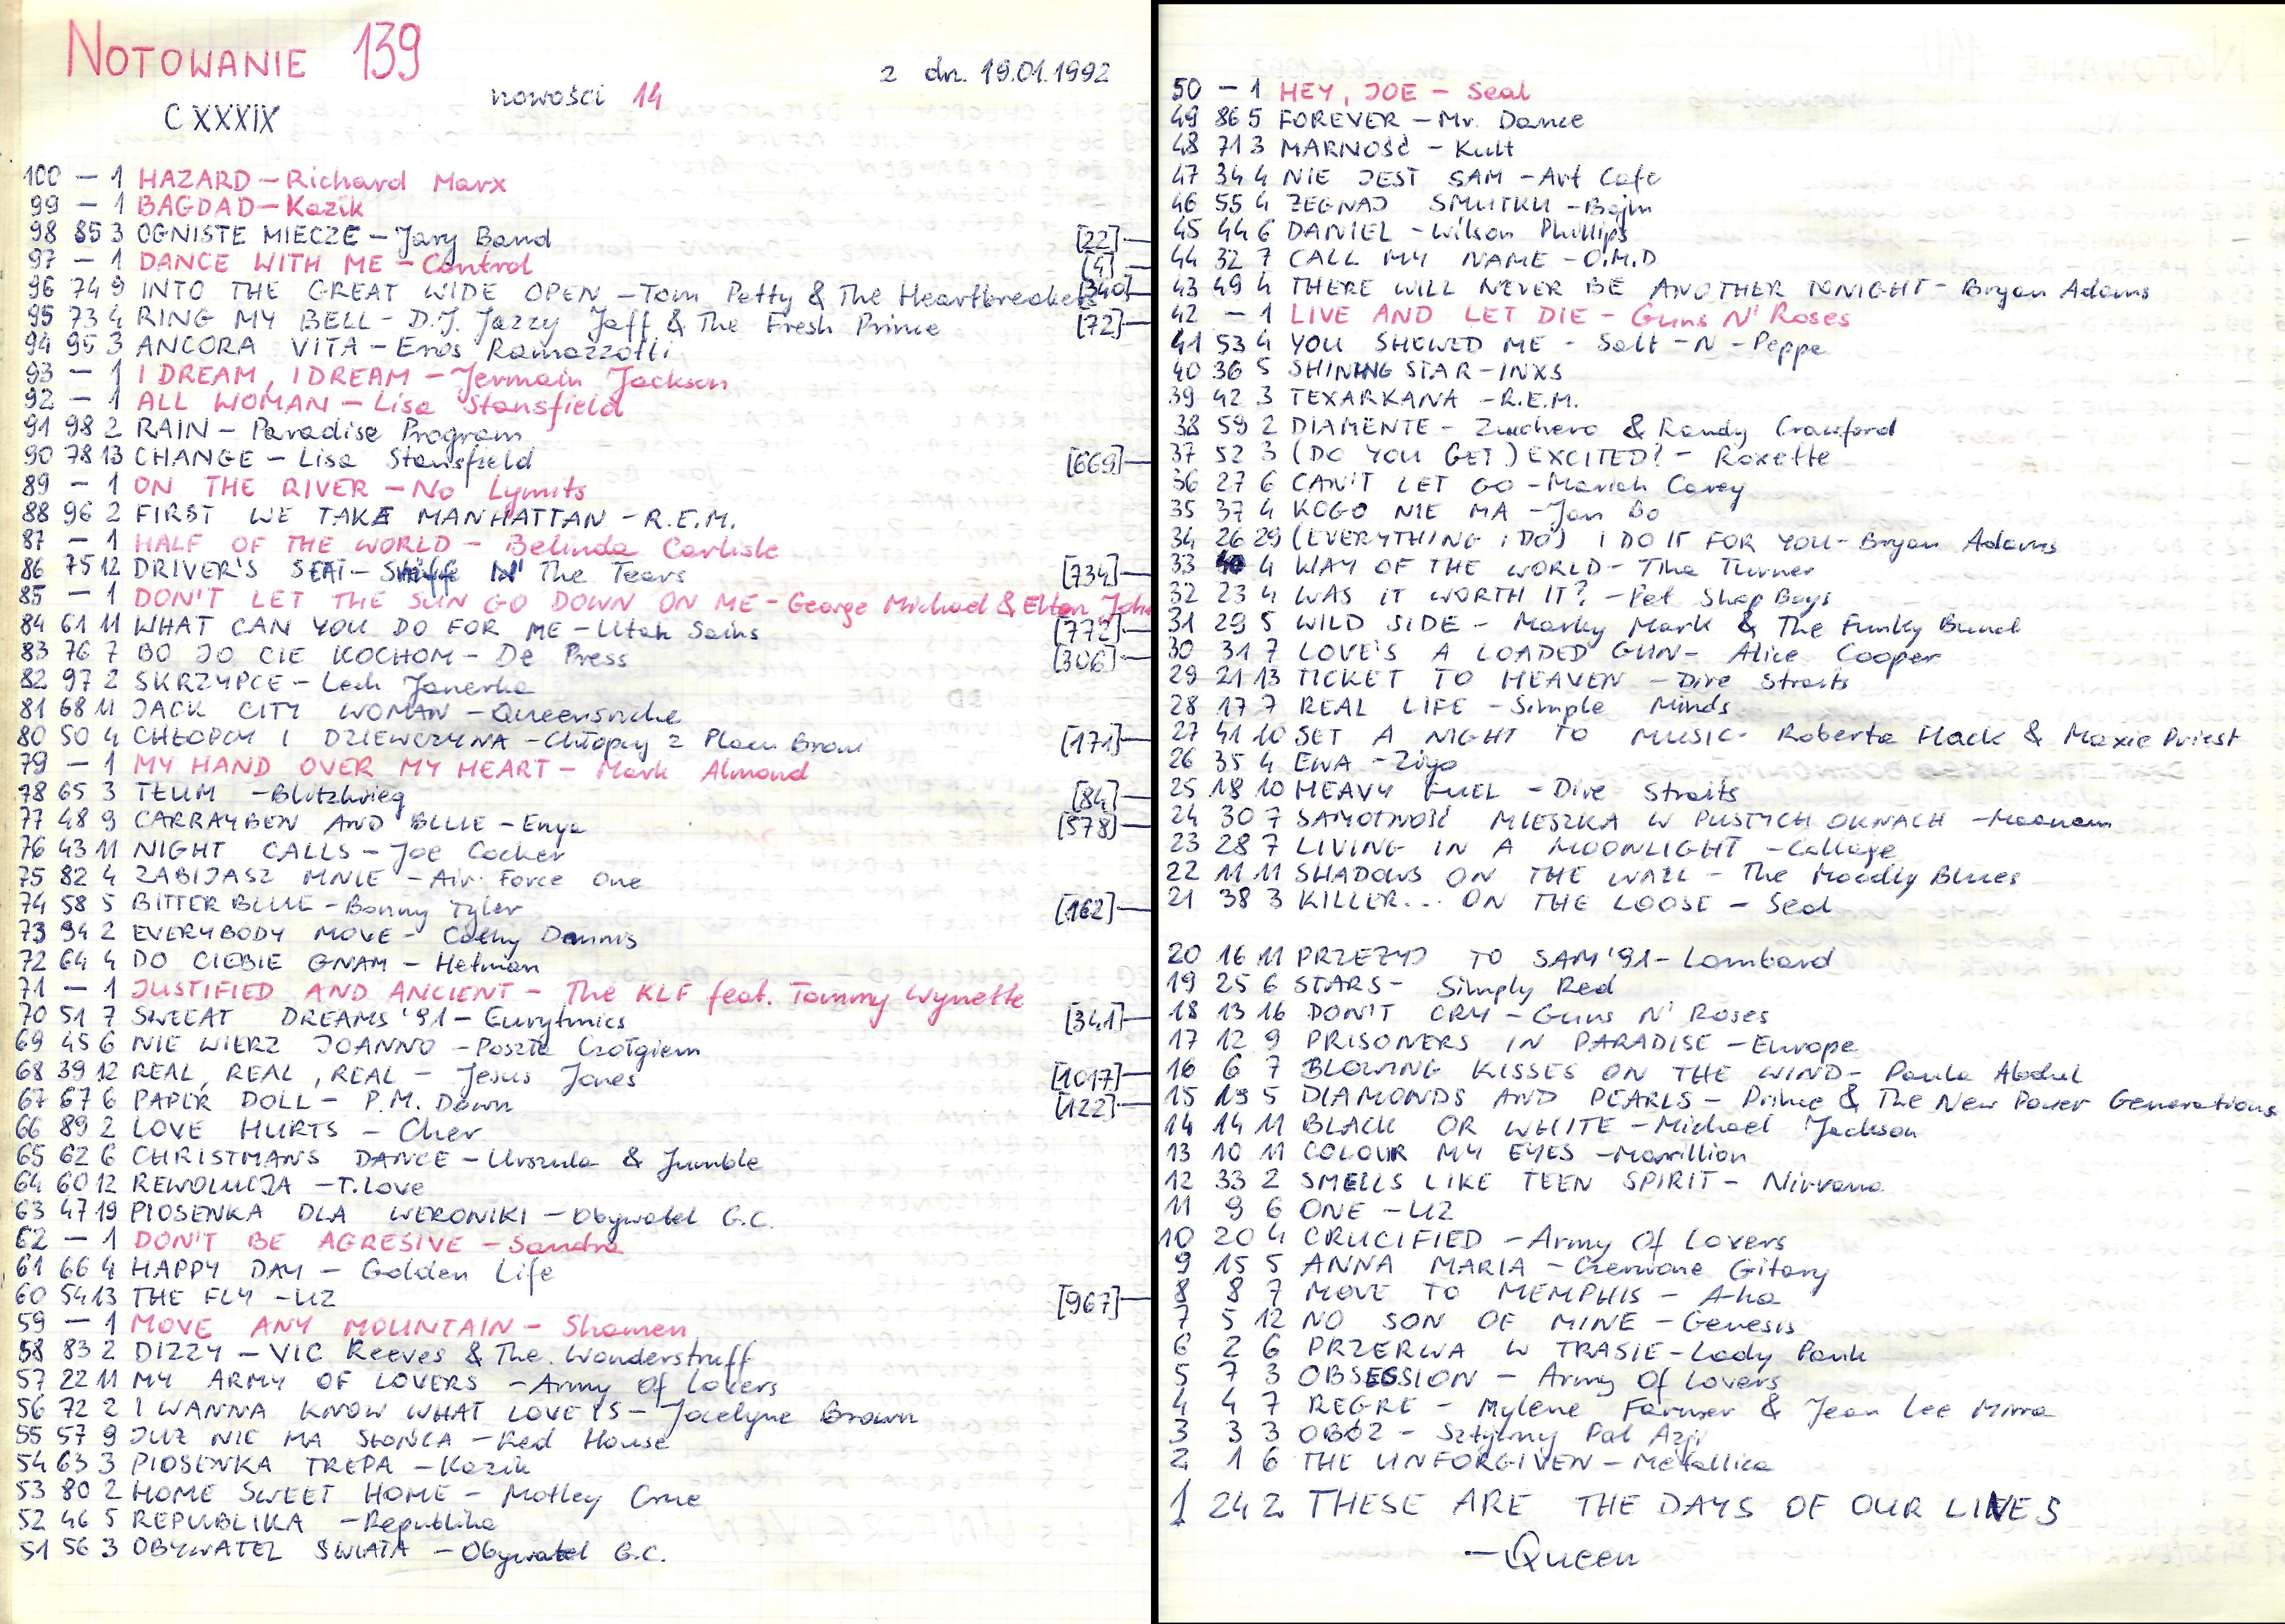 NOTOWANIE 139
z dn. 19.01.1992
nowości 14
CXXXIX
100 – 1 HAZARD – Richard Marx
99 – 1 BAGDAD – Kazik
98 85 3 OGNISTE MIECZE – Jary Band [22]
97 – 1 DANCE WITH ME – Control [4]
96 74 9 INTO THE GREAT WIDE OPEN – Tom Petty & The Heartbreakers [340]
95 73 4 RING MY BELL – D.J. Jazzy Jeff & The Fresh Prince [72]
94 95 3 ANCORA VITA – Eros Ramazzotti
93 – 1 I DREAM, I DREAM – Jermain Jackson
92 – 1 ALL WOMAN – Lisa Stansfield
91 98 2 RAIN – Paradise Program
90 78 13 CHANGE – Lisa Stansfield [669]
89 – 1 ON THE RIVER – No Lymits
88 96 2 FIRST WE TAKE MANHATTAN – R.E.M.
87 – 1 HALF OF THE WORLD – Belinda Carlisle
86 75 12 DRIVER'S SEAT – Sniff N' The Tears [734]
85 – 1 DON'T LET THE SUN GO DOWN ON ME – George Michael & Elton John
84 61 11 WHAT CAN YOU DO FOR ME – Utah Sains [772]
83 76 7 BO JO CIE KOCHOM – De Press [306]
82 97 2 SKRZYPCE – Lech Janerka
81 68 11 JACK CITY WOMAN – Queensryche
80 50 4 CHŁOPCY I DZIEWCZYNA – Chłopcy z Placu Broni [171]
79 – 1 MY HAND OVER MY HEART – Mark Almond
78 65 3 TEUM – Blitzkrieg [84]
77 48 9 CARRAYBEN AND BLUE – Enya [578]
76 43 11 NIGHT CALLS – Joe Cocker
75 82 4 ZABIJASZ MNIE – Air Force One
74 58 5 BITTER BLUE – Bonny Tyler [162]
73 94 2 EVERYBODY MOVE – Cathy Dennis
72 64 4 DO CIEBIE GNAM – Hetman
71 – 1 JUSTIFIED AND ANCIENT – The KLF feat. Tammy Wynette
70 51 7 SWEEAT DREAMS '91 – Eurytmics [341]
69 45 6 NIE WIERZ JOANNO – Poszła Czołgiem
68 39 12 REAL, REAL, REAL – Jesus Jones [1017]
67 67 6 PAPER DOLL – P.M. Dawn [122]
66 89 2 LOVE HURTS – Cher
65 62 6 CHRISTMANS DANCE – Urszula & Jumble
64 60 12 REWOLUCJA – T.Love
63 47 19 PIOSENKA DLA WERONIKI – Obywatel G.C.
62 – 1 DON'T BE AGRESIVE – Sandra
61 66 4 HAPPY DAY – Golden Life
60 54 13 THE FLY – U2 [967]
59 – 1 MOVE ANY MOUNTAIN – Shamen
58 83 2 DIZZY – VIC Reeves & The Wonderstruff
57 22 11 MY ARMY OF LOVERS – Army Of Lovers
56 72 2 I WANNA KNOW WHAT LOVE IS – Jocelyne Brown
55 57 9 JUŻ NIE MA SŁOŃCA – Red House
54 63 3 PIOSENKA TREPA – Kazik
53 80 2 HOME SWEET HOME – Motley Crue
52 46 5 REPUBLIKA – Republika
51 56 3 OBYWATEL ŚWIATA – Obywatel G.C.
50 – 1 HEY, JOE – Seal
49 86 5 FOREVER – Mr. Dance
48 71 3 MARNOŚĆ – Kult
47 34 4 NIE JEST SAM – Art Cafe
46 55 4 ŻEGNAJ SMUTKU – Bajm
45 44 6 DANIEL – Wilson Phillips
44 32 7 CALL MY NAME – O.M.D
43 49 4 THERE WILL NEVER BE ANOTHER TONIGHT – Bryan Adams
42 – 1 LIVE AND LET DIE – Guns N' Roses
41 53 4 YOU SHOWED ME – Salt – N – Peppe
40 36 5 SHINING STAR – INXS
39 42 3 TEXARKANA – R.E.M.
38 59 2 DIAMENTE – Zucchero & Randy Crawford
37 52 3 (DO YOU GET) EXCITED? – Roxette
36 27 6 CAN'T LET GO – Mariah Carey
35 37 4 KOGO NIE MA – Jan Bo
34 26 29 (EVERYTHING I DO) I DO IT FOR YOU – Bryan Adams
33 40 4 WAY OF THE WORLD – Tina Turner
32 23 4 WAS IT WORTH IT? – Pet Shop Boys
31 29 5 WILD SIDE – Marky Mark & The Funky Bunch
30 31 7 LOVE'S A LOADED GUN – Alice Cooper
29 21 13 TICKET TO HEAVEN – Dire Straits
28 17 7 REAL LIFE – Simple Minds
27 41 10 SET A NIGHT TO MUSIC – Roberta Flack & Maxie Priest
26 35 4 EWA – Ziyo
25 18 10 HEAVY FUEL – Dire Straits
24 30 7 SAMOTNOŚĆ MIESZKA W PUSTYCH OKNACH – Maanam
23 28 7 LIVING IN A MOONLIGHT – Collage
22 11 11 SHADOWS ON THE WALL – The Moodly Blues
21 38 3 KILLER... ON THE LOOSE – Seal
20 16 11 PRZEŻYJ TO SAM '91 – Lombard
19 25 6 STARS – Simply Red
18 13 16 DON'T CRY – Guns N' Roses
17 12 9 PRISONERS IN PARADISE – Europe
16 6 7 BLOWING KISSES ON THE WIND – Paula Abdul
15 19 5 DIAMONDS AND PEARLS – Prince & The New Power Generations
14 14 11 BLACK OR WHITE – Michael Jackson
13 10 11 COLOUR MY EYES – Marrillion
12 33 2 SMELLS LIKE TEEN SPIRIT – Nirvana
11 9 6 ONE – U2
10 20 4 CRUCIFIED – Army Of Lovers
9 15 5 ANNA MARIA – Czerwone Gitary
8 8 7 MOVE TO MEMPHIS – A-ha
7 5 12 NO SON OF MINE – Genesis
6 2 6 PRZERWA W TRASIE – Lady Pank
5 7 3 OBSESSION – Army Of Lovers
4 4 7 REGRE – Mylene Farmer & Jean Lee Mirra
3 3 3 OBÓZ – Sztywny Pal Azji
2 1 6 THE UNFORGIVEN – Metallica
1 24 2 THESE ARE THE DAYS OF OUR LIVES
– Queen